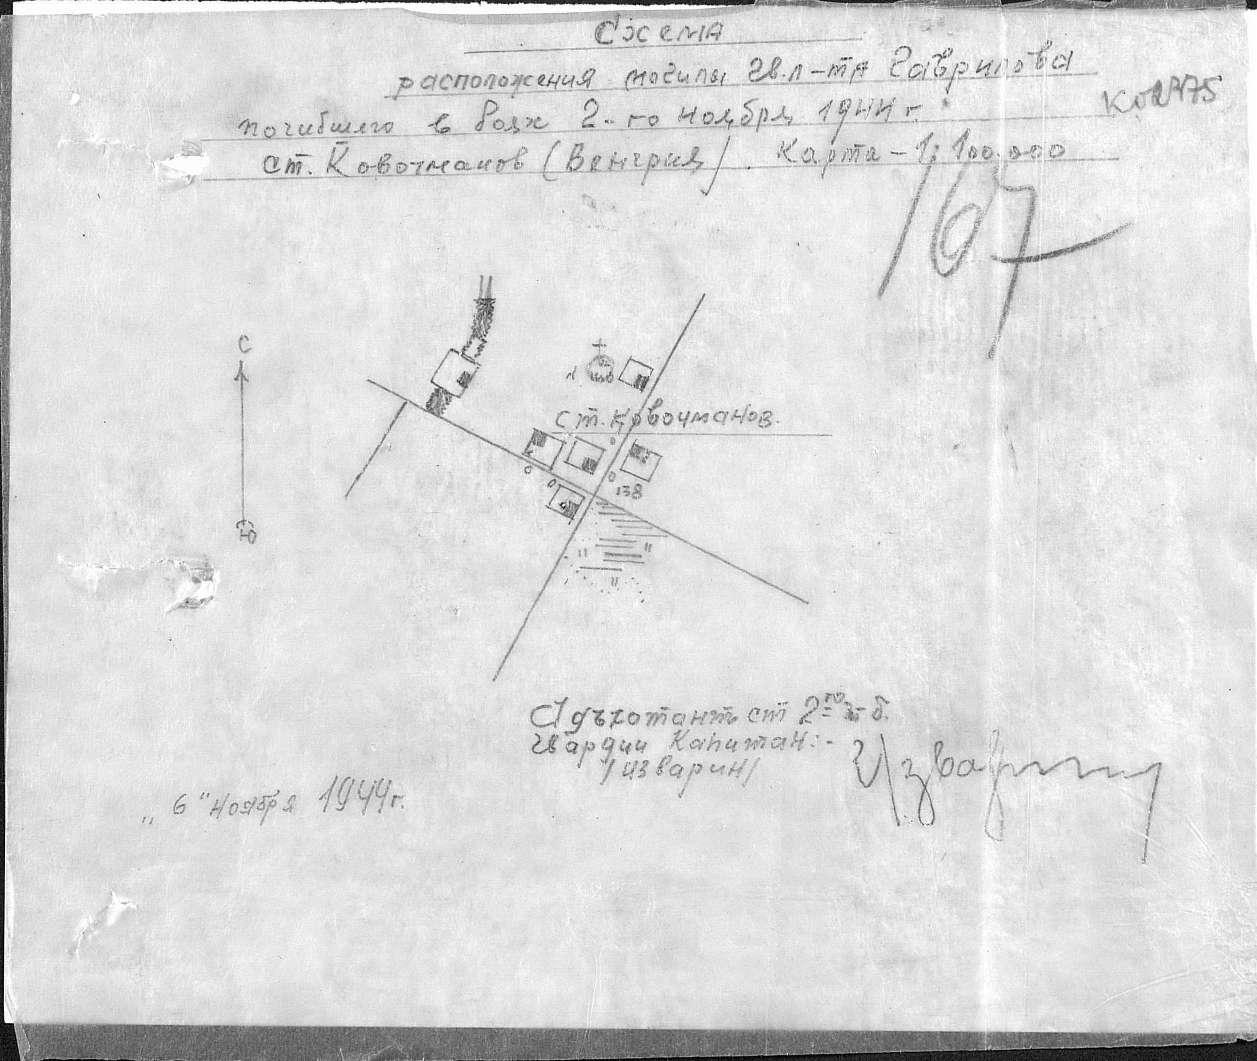 Схема
расположения могилы гв. л-та Гаврилова
погибшего в боях 2-го ноября 1944 г.
ст. Ковочманов (Венгрия). Карта – 1:100.000
167
С
ст. Ковочманов.
138
Ю
Адъютант ст 2-го
гвардии Капитан:-
/Изварин/
Изварин
„6“ Ноября 1944г.